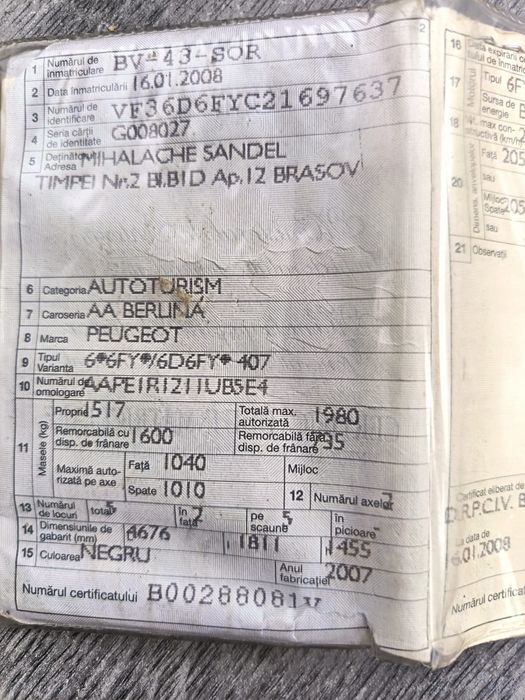 2
1 Numărul de înmatriculare BV-43-SOR
2 Data înmatriculării 16.01.2008
3 Numărul de identificare VF36D6FYC21697637
4 Seria cărții de identitate G008027
5 Deținător MIHALACHE SANDEL
Adresa
TIMPEI Nr.2 Bl.B1D Ap.12 BRASOV
6 Categoria AUTOTURISM
7 Caroseria AA BERLINA
8 Marca PEUGEOT
9 Tipul Varianta 6*6FY*/6D6FY* 407
10 Numărul de omologare AAPE1R1211UB5E4
11 Masele (kg)
Proprie 1517 Totală max. autorizată 1980
Remorcabilă cu disp. de frânare 1600 Remorcabilă fără disp. de frânare 95
Maximă autorizată pe axe Față 1040 Mijloc
Spate 1010 12 Numărul axelor 2
13 Numărul de locuri total 5 în față 2 pe scaune 5 în picioare
14 Dimensiunile de gabarit (mm) 4676 1811 1455
15 Culoarea NEGRU Anul fabricației 2007
Numărul certificatului B00288081V
16 Data expirării
17 Motorul Tipul 6F
Sursa de energie
18
Față 205
sau
20 Mijloc
Spate 205
sau
21 Observații
Certificat eliberat de
D.R.P.C.I.V. B
La data de
16.01.2008
Numărul certificat